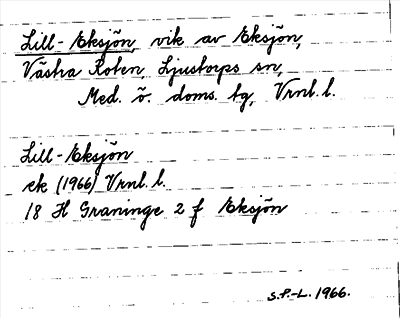 Lill-Eksjön, vik av Eksjön,
Västra Roten, Ljustorps sn,
Med. ö. doms. tg, Vrnl. l.
Lill-Eksjön
ek (1966) Vrnl. l.
18 H Graninge 2 f Eksjön
S.P.-L. 1966.